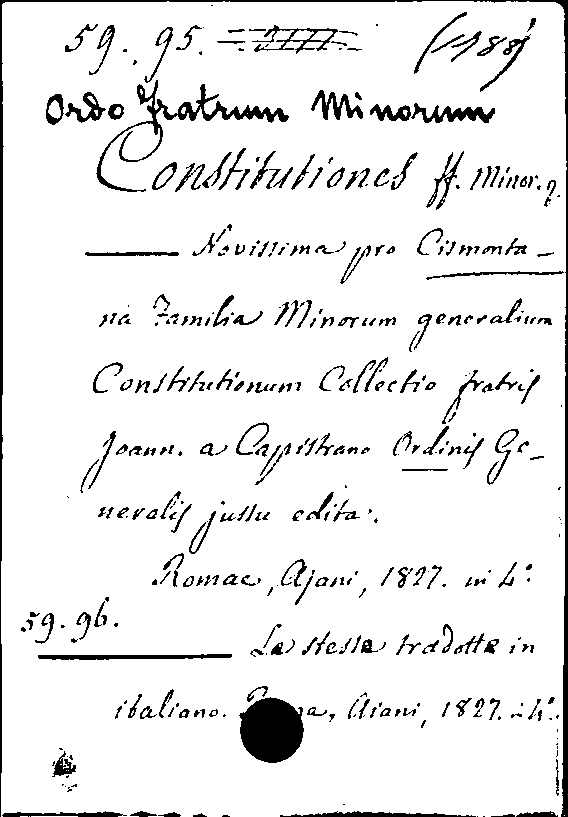 59. 95. (188)
Ordo Fratrum Minorum
Constitutiones ff. Minor.
Novissima pro Cismonta-
na Familia Minorum generalium
Constitutionum Collectio fratris
Joann. a Capistrano Ordinis Ge-
neralis jussu edita.
Romae, Ajani, 1827. in 4°.
59. 96.
La stessa tradotta in
italiano. Ajani, 1827. in 4°.